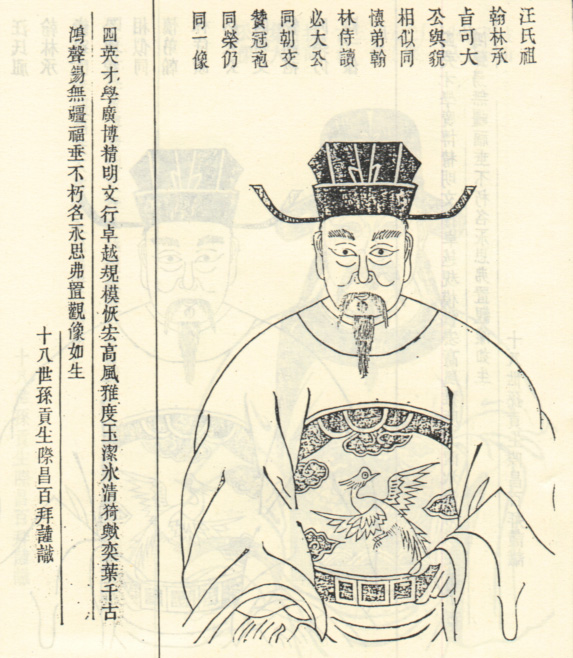 汪氏祖
翰林承
旨可大
公與貌
相似同
懷弟翰
林侍讀
必大公
同朝交
贊冠袍
同榮仍
同一像
四英才學廣博精明文行卓越規模恢宏高風雅度玉潔氷清猗歟奕葉千古
鴻聲無疆福垂不朽名永思弗置觀像如生
十八世孫貢生際昌百拜謹識